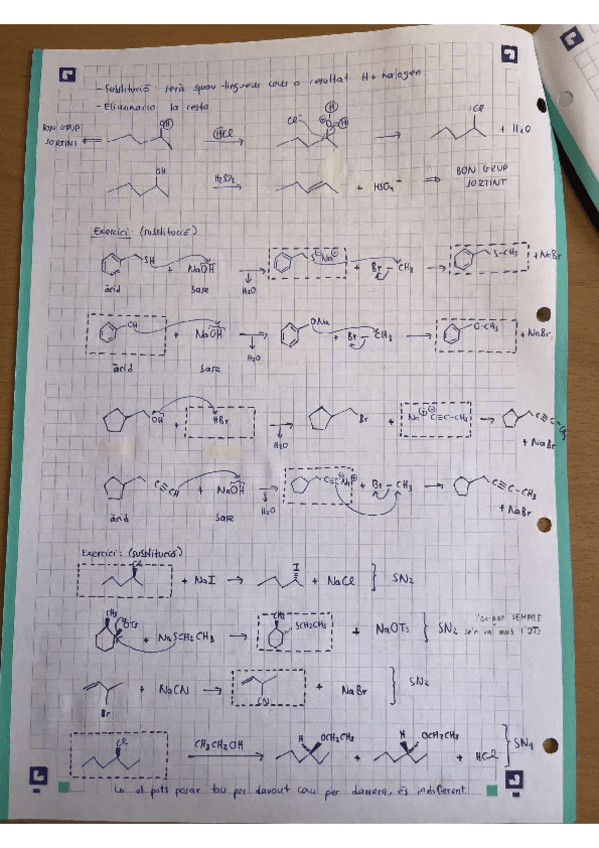 - Substitució serà quan tinguem com a resultat H + halogen
- Eliminacio la resta
BON GRUP SORTINT OH HCl Cl⁻ H O H Cl + H₂O
OH H₂SO₄ + HSO₄⁻ BON GRUP SORTINT
Exercici: (substitució)
SH + NaOH S⊖ Na⊕ + Br - CH₃ S-CH₃ + NaBr
àcid base H₂O
OH + NaOH ONa + Br - CH₃ O-CH₃ + NaBr
àcid base H₂O
OH + HBr Br + Na⊕ ⊖C≡C-CH₃ C≡C-CH₃
H₂O + NaBr
C≡CH + NaOH C≡C⊖ Na⊕ + Br - CH₃ C≡C-CH₃
àcid base H₂O + NaBr
Exercici: (substitució)
Cl + NaI I + NaCl } SN2
CH₃ OTs + NaSCH₂CH₃ CH₃ SCH₂CH₃ + NaOTs } SN2 SEMPRE
se'n va amb l'OTs
Br + NaCN CN + NaBr } SN2
Cl CH₃CH₂OH H OCH₂CH₃ + H OCH₂CH₃ + HCl } SN1
Lo el pots posar tan per davant com per darrera, és indiferent